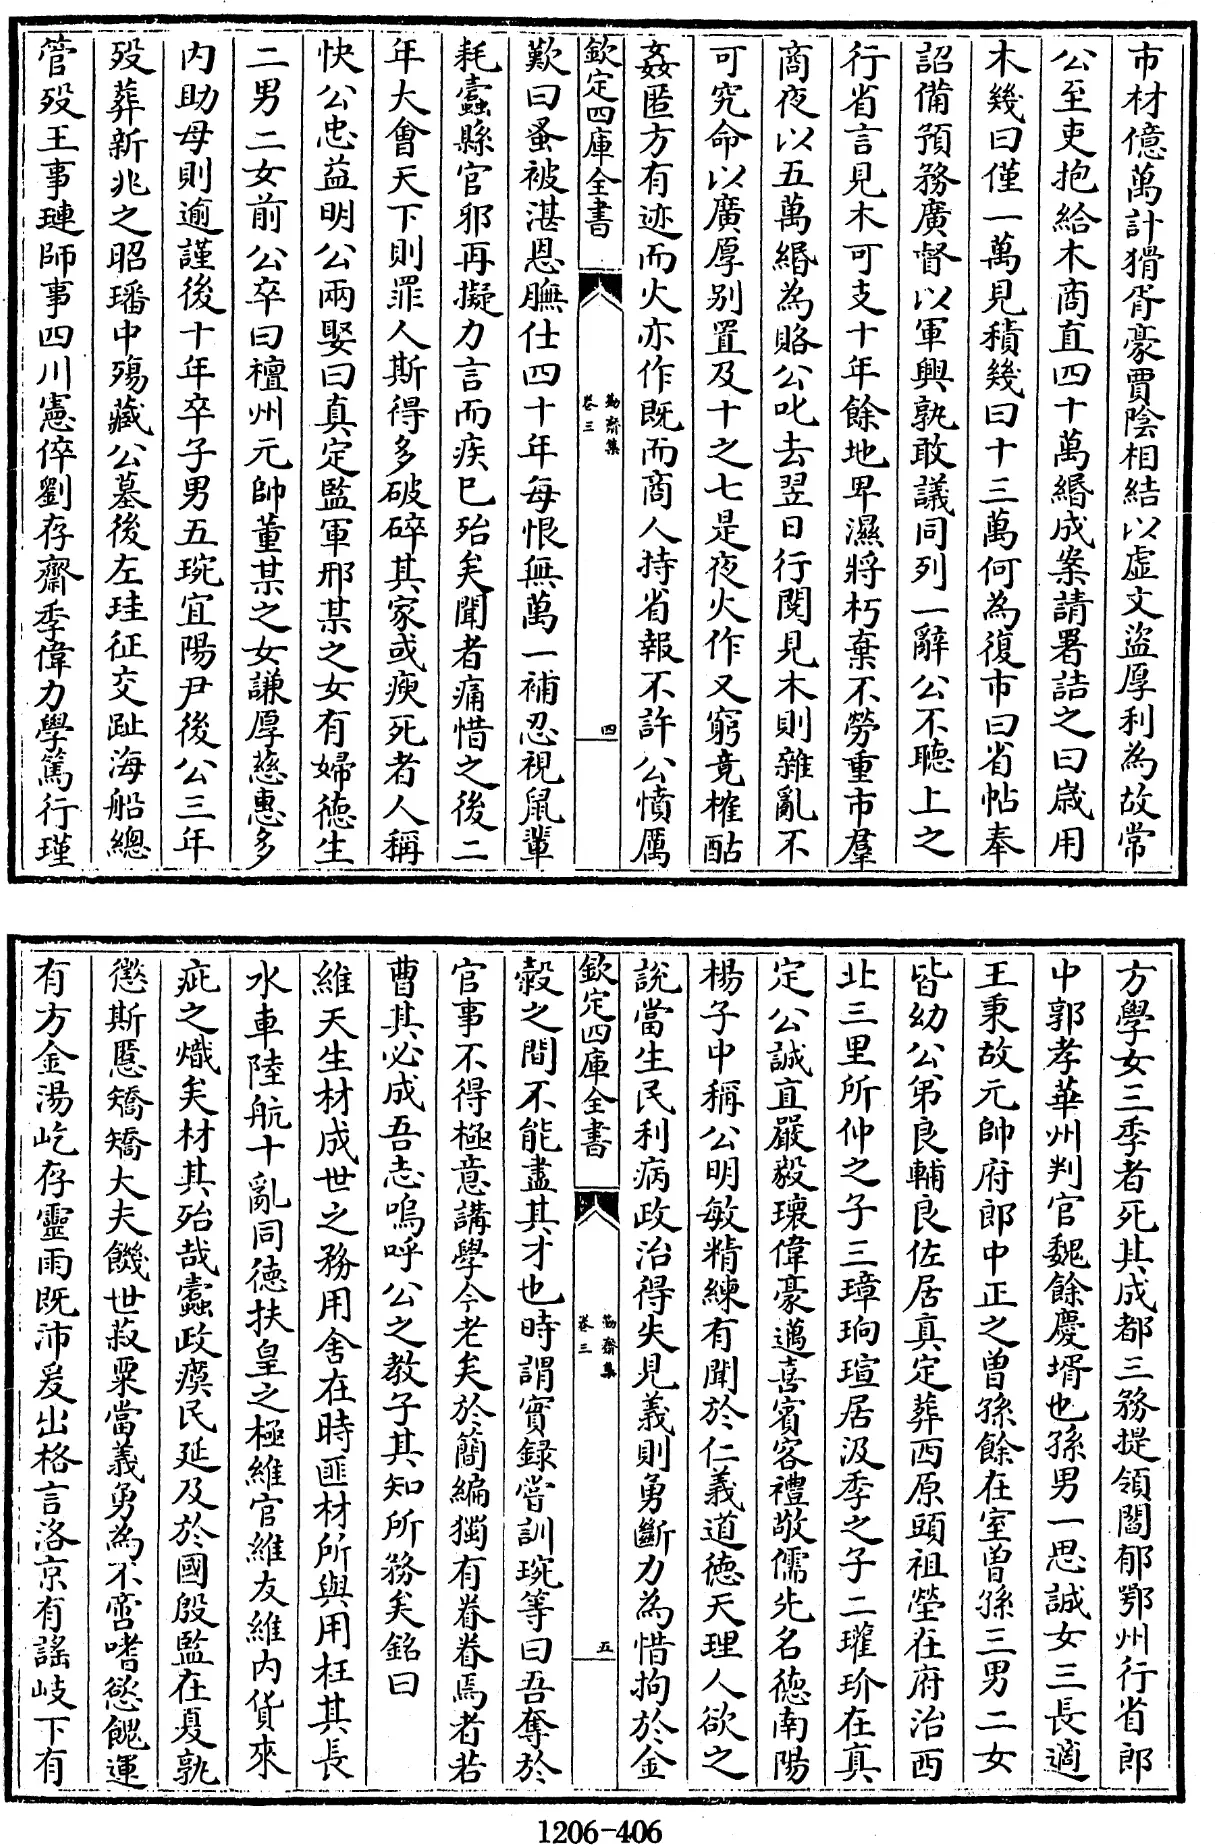 市材億萬計猾胥豪賈陰相結以虛文盜厚利為故常
公至吏抱給木商直四十萬緡成案請署詰之曰歲用
木幾曰僅一萬見積幾曰十三萬何為復市曰省帖奉
詔備預務廣督以軍興孰敢議同列一辭公不聽上之
行省言見木可支十年餘地卑濕將朽棄不勞重市羣
商夜以五萬緡為賂公叱去翌日行閱見木則雜亂不
可究命以廣厚别置及十之七是夜火作又窮竟榷酤
姦匿方有迹而火亦作既而商人持省報不許公憤厲
欽定四庫全書
勤齋集
卷三
四
歎曰蚤被湛恩膴仕四十年每恨無萬一補忍視鼠輩
耗蠹縣官邪再擬力言而疾已殆矣聞者痛惜之後二
年大會天下則罪人斯得多破碎其家或瘐死者人稱
快公忠益明公兩娶曰真定監軍邢某之女有婦德生
二男二女前公卒曰檀州元帥董某之女謙厚慈惠多
内助母則逾謹後十年卒子男五琬宜陽尹後公三年
殁葬新兆之昭璠中殤藏公墓後左珪征交趾海船總
管殁王事璉師事四川憲倅劉存齋季偉力學篤行瑾
方學女三季者死其成都三務提領閻郁鄂州行省郎
中郭孝華州判官魏餘慶壻也孫男一思誠女三長適
王秉故元帥府郎中正之曽孫餘在室曽孫三男二女
皆幼公弟良輔良佐居真定葬西原頭祖塋在府治西
北三里所仲之子三璋珦瑄居汲季之子二瓘玠在真
定公誠直嚴毅瓌偉豪邁喜賓客禮敬儒先名德南陽
楊子中稱公明敏精練有聞於仁義道德天理人欲之
説當生民利病政治得失見義則勇斷力為惜拘於金
欽定四庫全書
勤齋集
卷三
五
穀之間不能盡其才也時謂實録嘗訓琬等曰吾奪於
官事不得極意講學今老矣於簡編獨有眷眷焉者若
曹其必成吾志嗚呼公之教子其知所務矣銘曰
維天生材成世之務用舍在時匪材所與用枉其長
水車陸航十亂同德扶皇之極維官維友維内貨來
疵之熾矣材其殆哉蠹政瘼民延及於國殷監在夏孰
懲斯慝矯矯大夫饑世菽粟當義勇為不啻嗜慾餽運
有方金湯屹存靈雨既沛爰出格言洛京有謡岐下有
1206-406